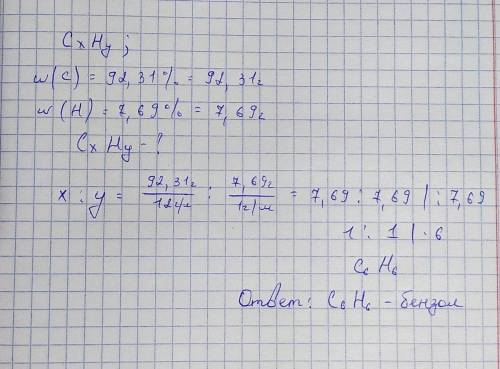 CxHy;
w(C) = 92,31% = 92,31г
w(H) = 7,69% = 7,69г
CxHy - ?
x : y = 92,31г/12г/м : 7,69г/1г/м = 7,69 : 7,69 | : 7,69
1 : 1 | · 6
C6H6
Ответ: C6H6 - бензол